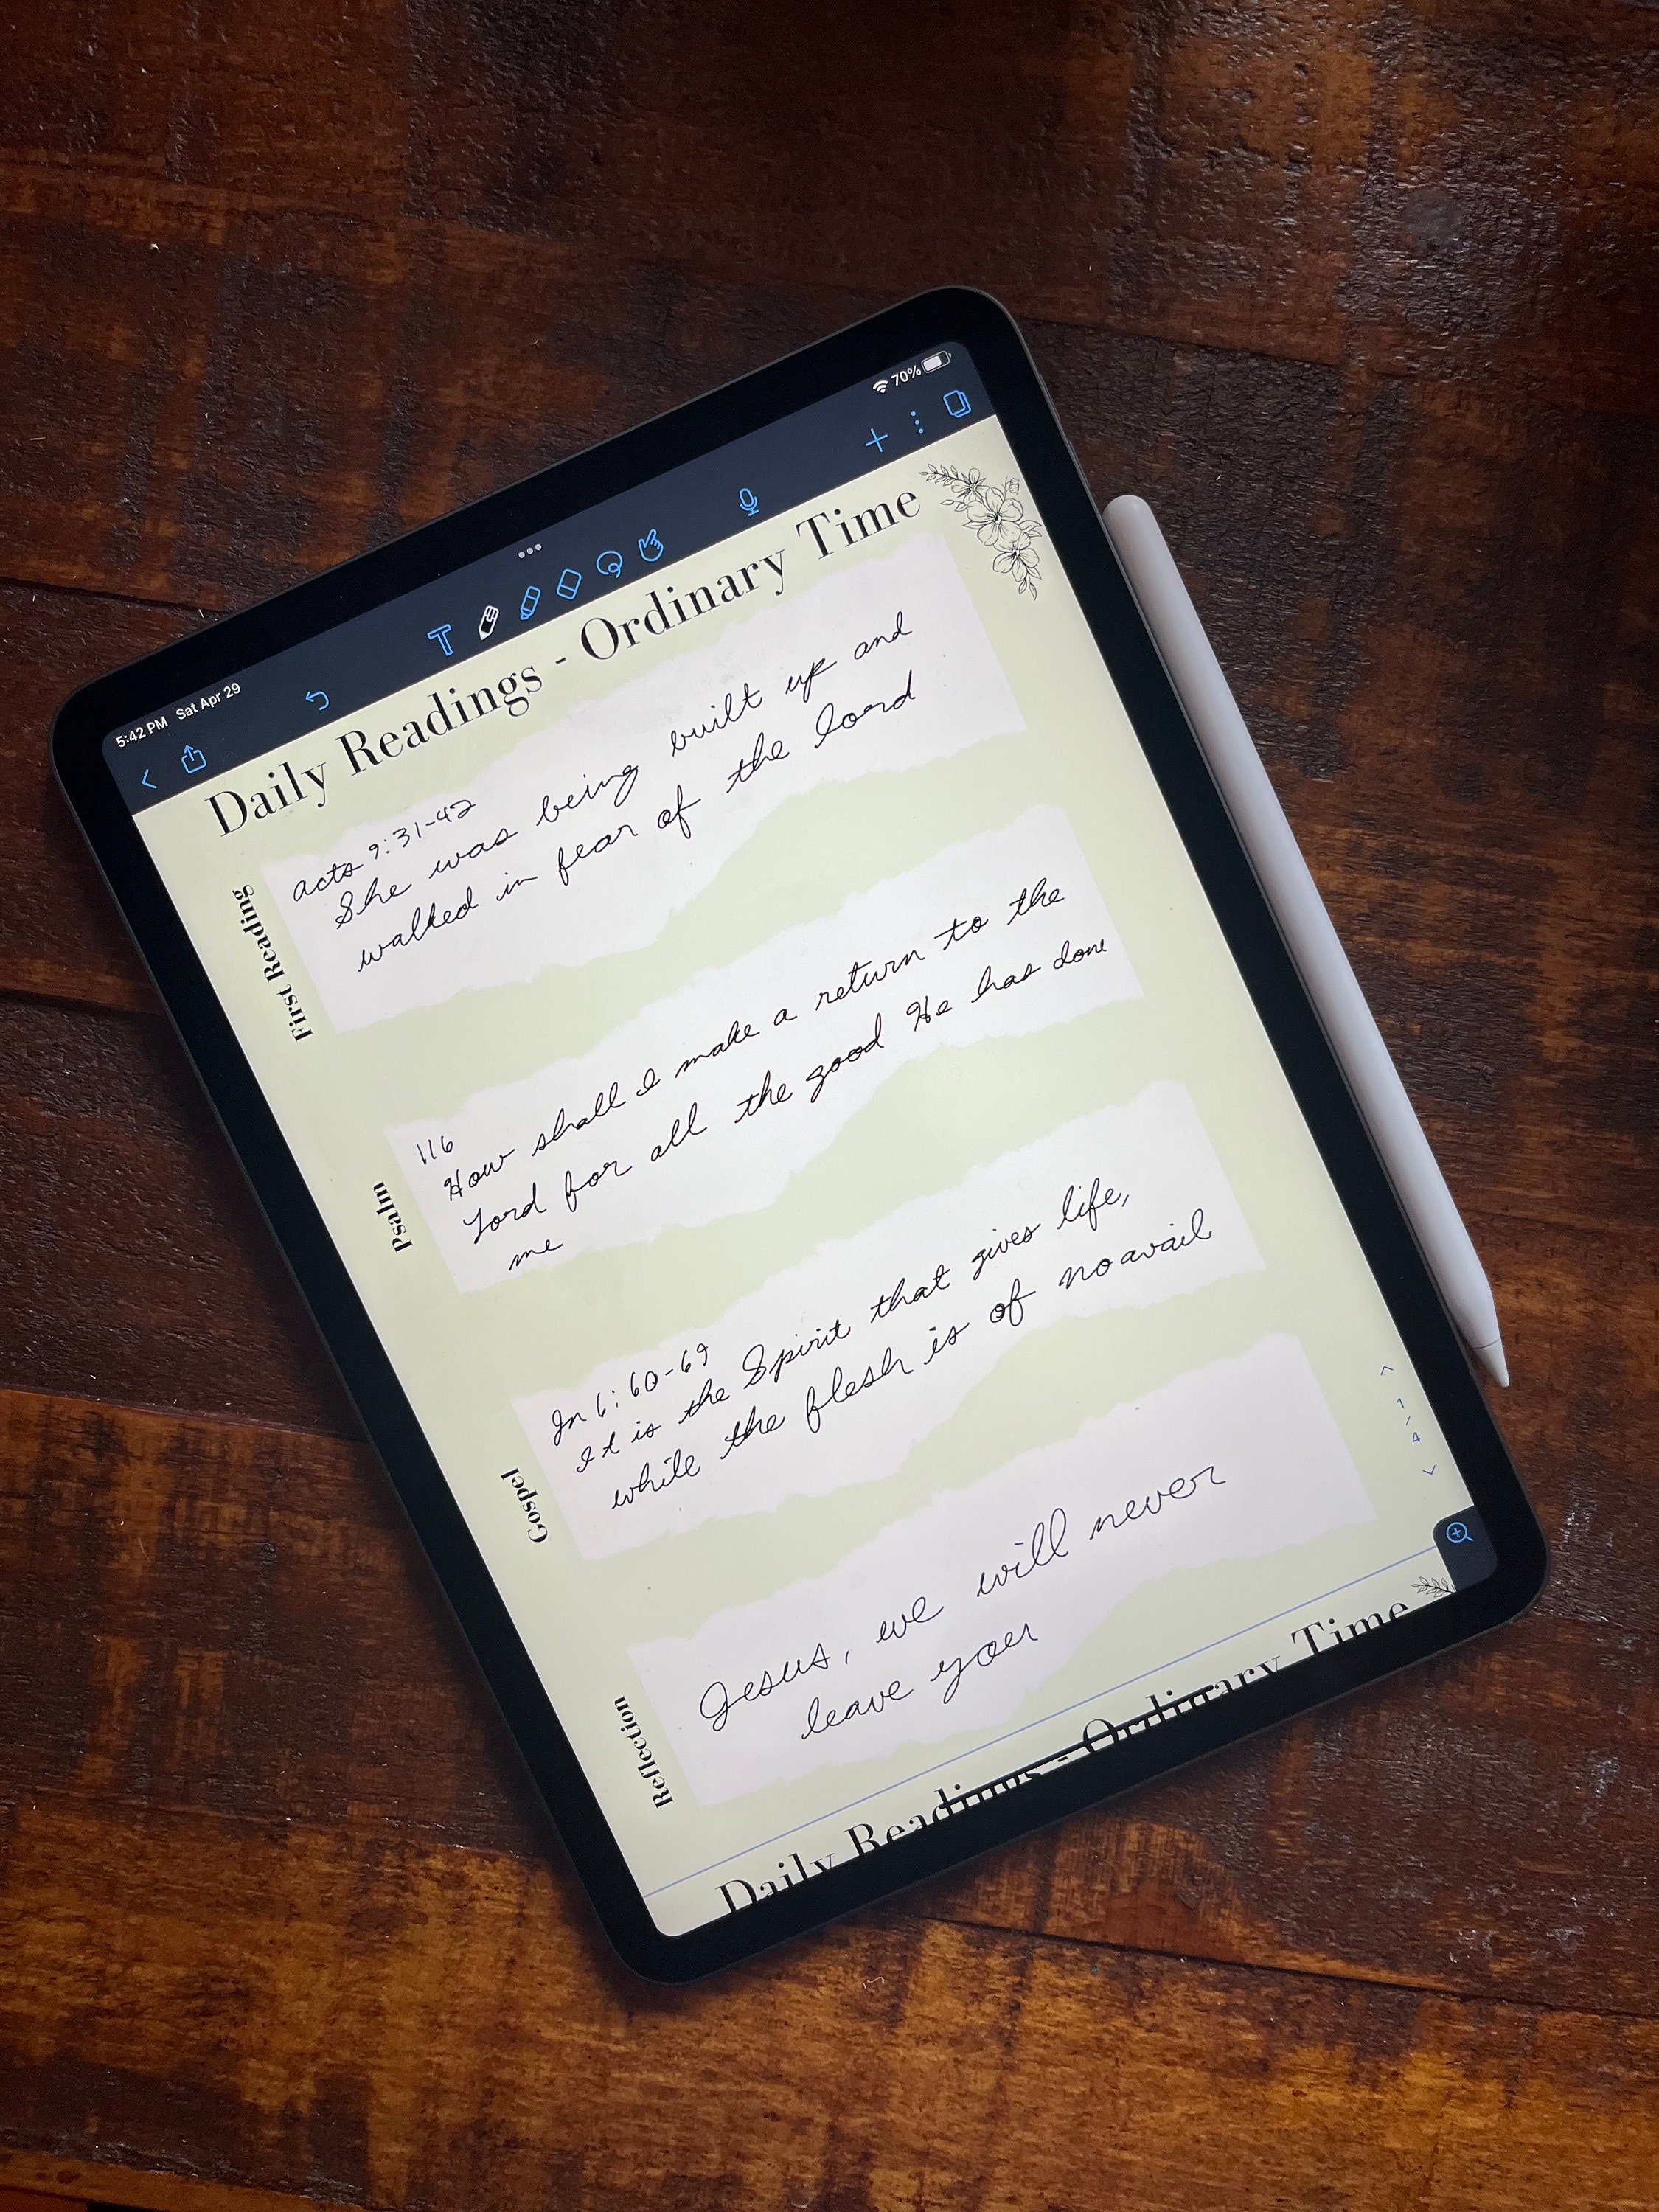 5:42 PM Sat Apr 29
70%
Daily Readings - Ordinary Time
First Reading
Acts 9:31-42
She was being built up and
walked in fear of the Lord
Psalm
116
How shall I make a return to the
Lord for all the good He has done
me
Gospel
Jn 6:60-69
It is the Spirit that gives life,
while the flesh is of no avail
Reflection
Jesus, we will never
leave you
1/4
Daily Readings - Ordinary Time